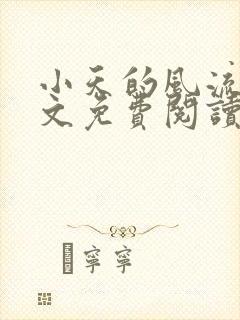 小天的風流
文免費閱讀
寧寧